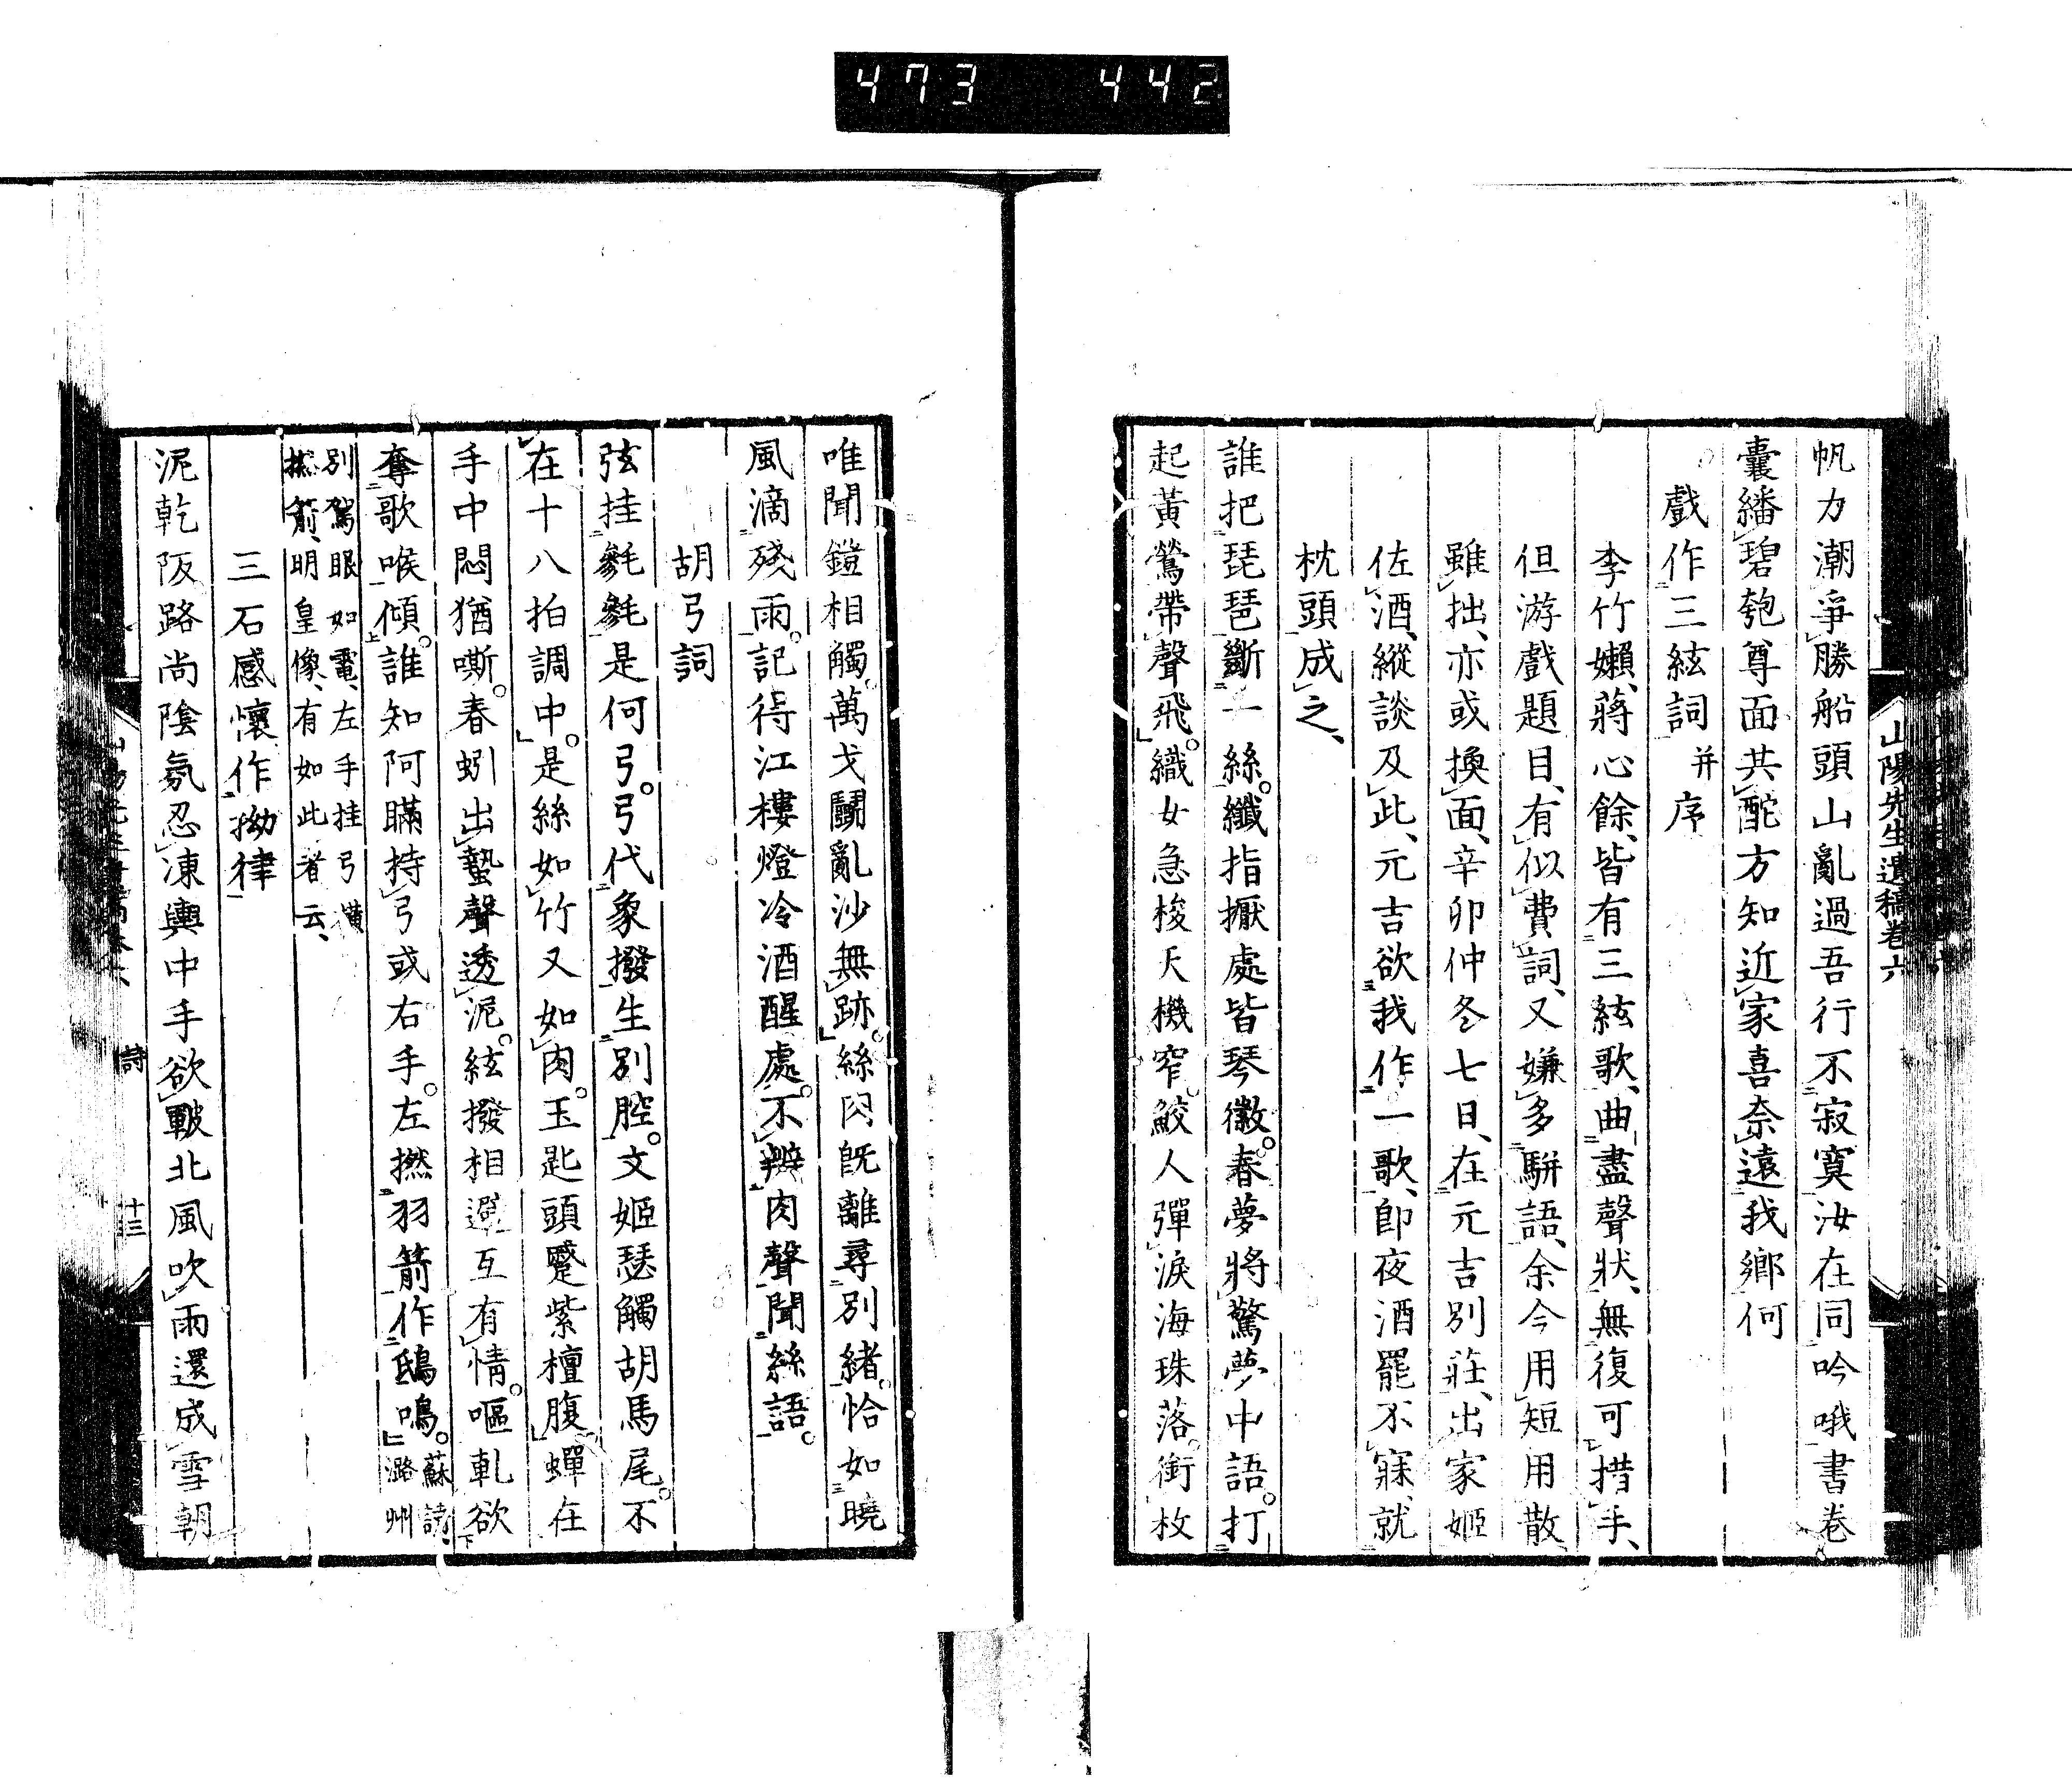 473 442
山陽先生遺稿卷六
帆力潮爭勝船頭山亂過吾行不寂寞汝在同吟哦書卷
囊繙碧匏尊面共酡方知近家喜奈遠我鄉何
戲作三絃詞并序
李竹嬾、蔣心餘、皆有三絃歌、曲盡聲狀、無復可措手、
但游戲題目、有似費詞、又嫌多駢語、余今用短用散
雖拙、亦或換面、辛卯仲冬七日、在元吉別莊、出家姬
佐酒、縱談及此、元吉欲我作一歌、卽夜酒罷不寐、就
枕頭成之、
誰把琵琶斷一絲。纖指摋處皆琴徽。春夢將驚夢中語。打
起黃鶯帶聲飛。織女急梭天機窄。鮫人彈淚海珠落。銜枚
唯聞鎧相觸。萬戈鬭亂沙無跡。絲肉旣離尋別緒。恰如曉
風滴殘雨。記得江樓燈冷酒醒處。不辨肉聲聞絲語。
胡弓詞
弦挂毿毿是何弓。弓代象撥生別腔。文姬瑟觸胡馬尾。不
在十八拍調中。是絲如竹又如肉。玉匙頭蹙紫檀腹。蟬在
手中悶猶嘶。春蚓出蟄聲透泥。絃撥相避互有情。嘔軋欲
奪歌喉傾。誰知阿瞞持弓或右手。左撚羽箭作鴟鳴。蘇詩、
潞州
別駕眼如電、左手挂弓橫
撚箭、明皇像、有如此者云、
三石感懷作拗律
泥乾阪路尚陰氛忍凍輿中手欲皸北風吹雨還成雪朝
詩 十三